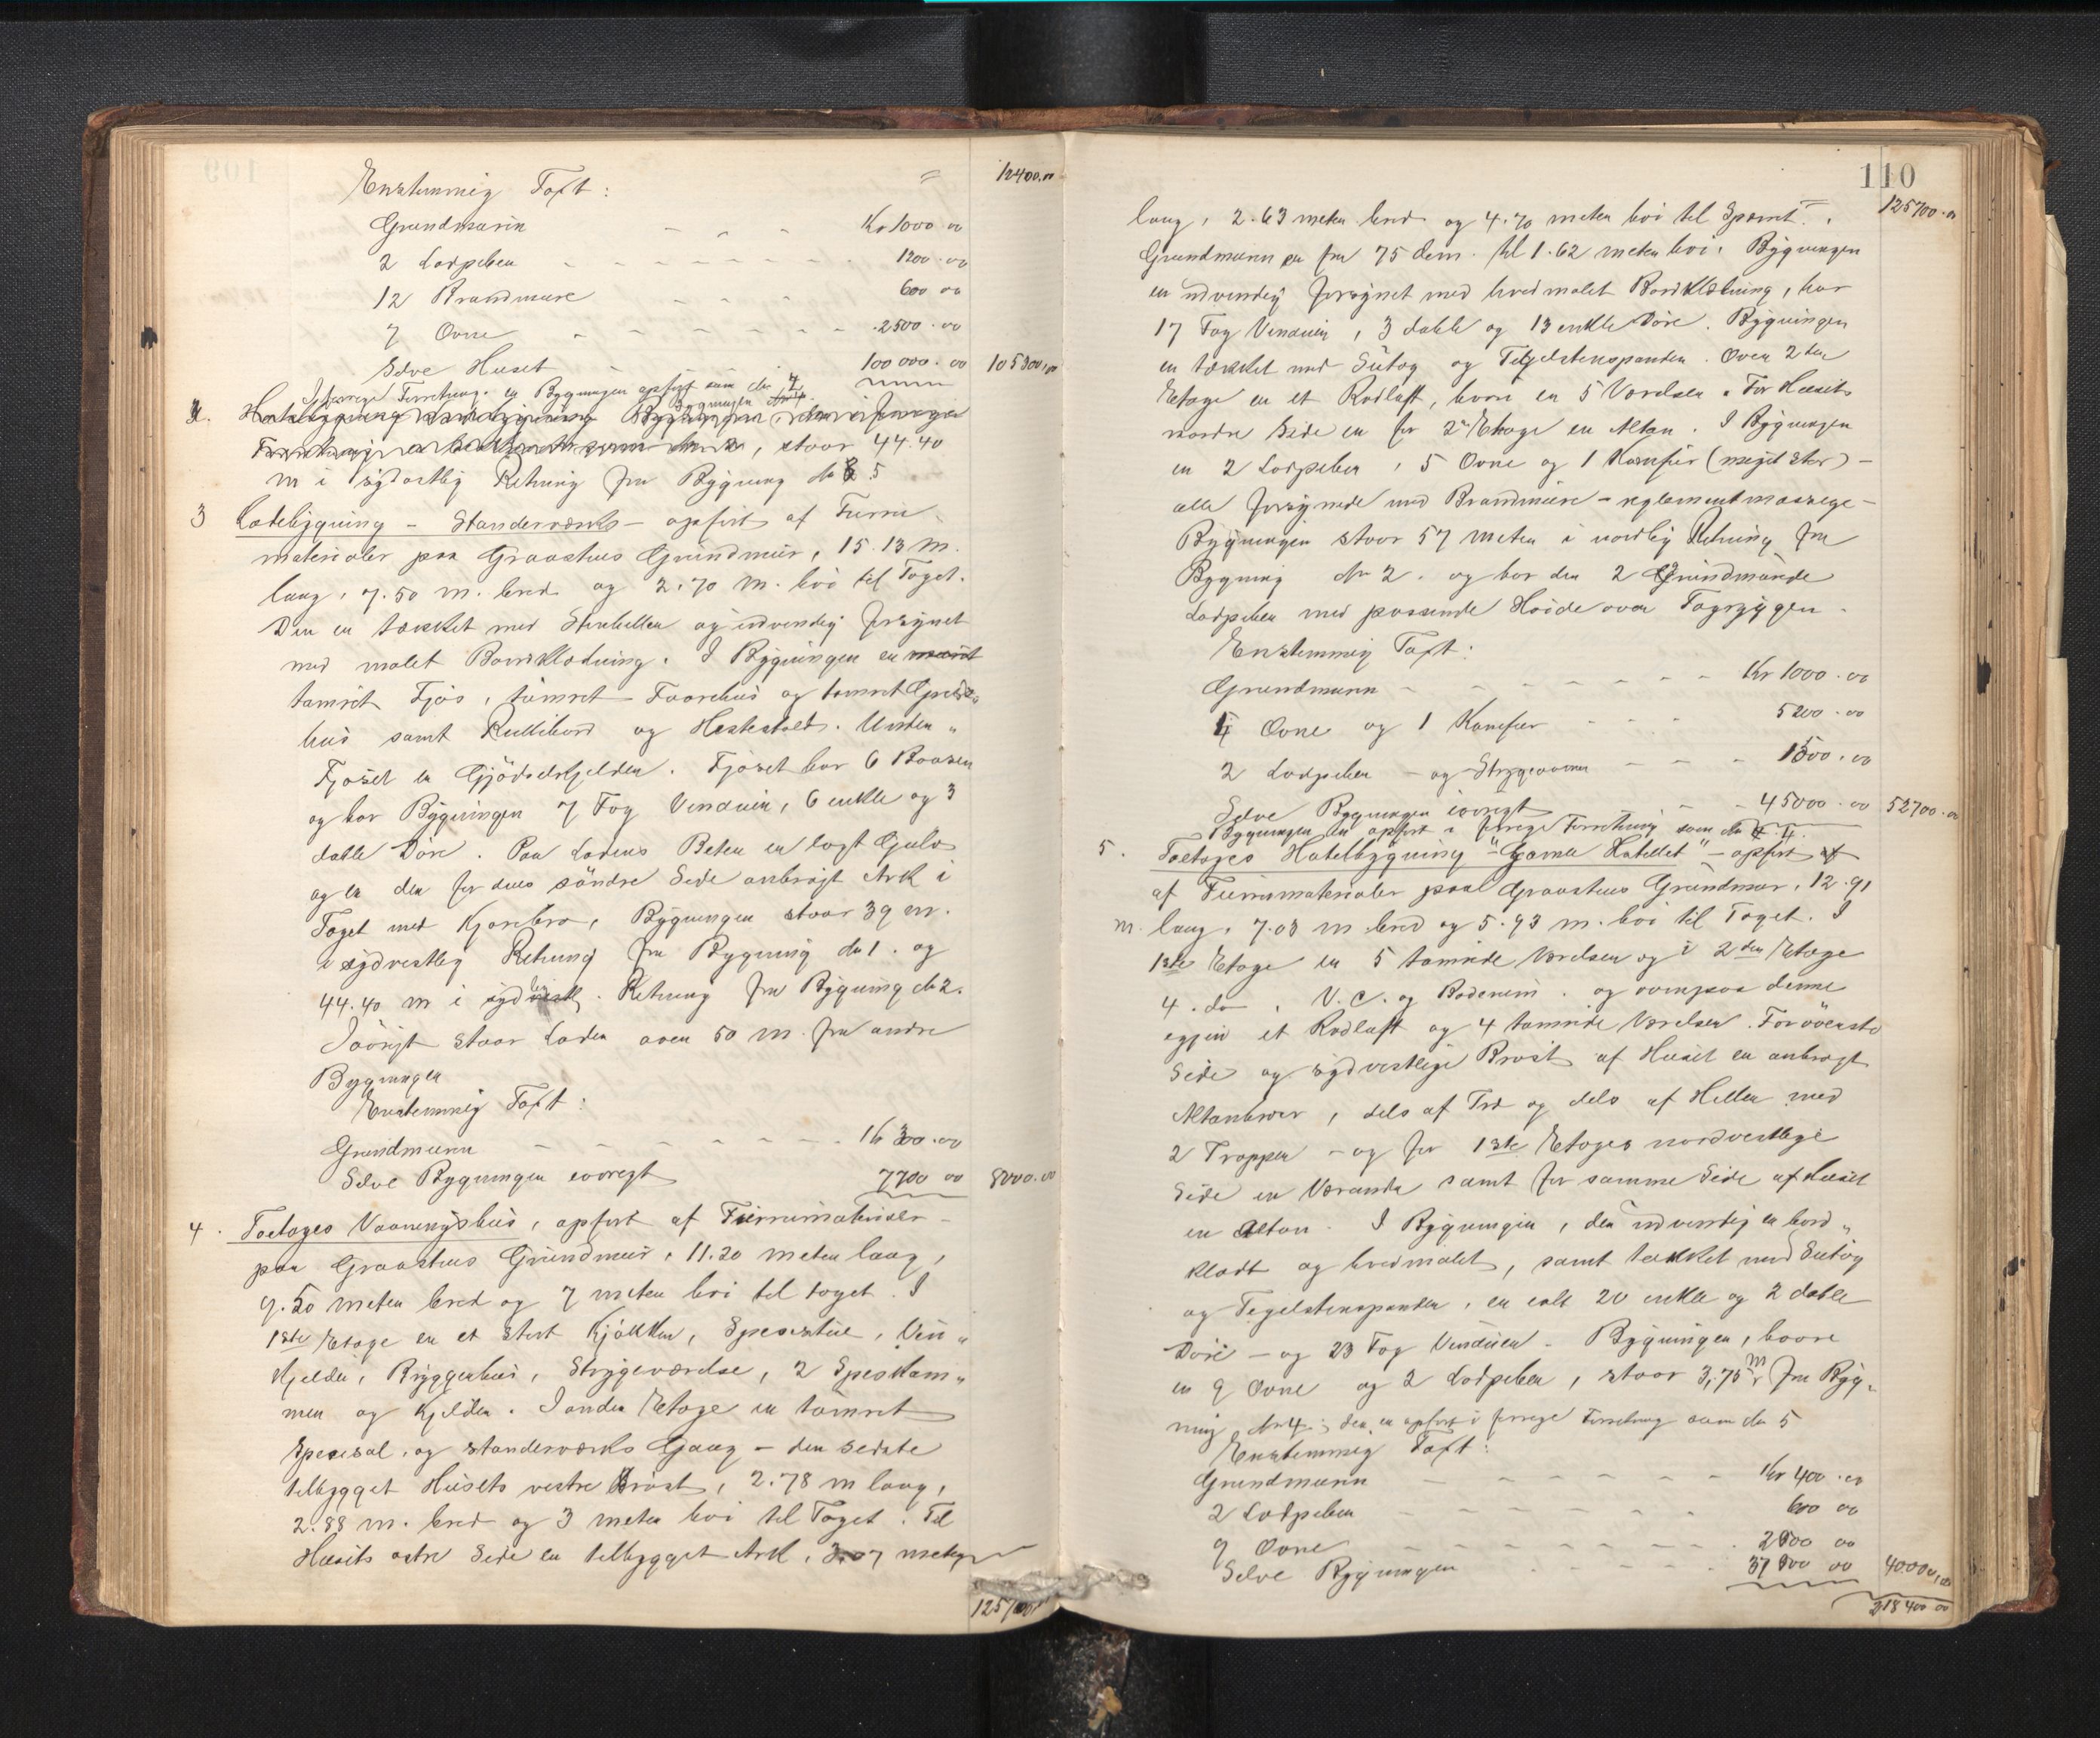 109
Enstemmig Taxt: = 12400.00
Grundmuren - - - Kr 1000.00
2 Lodpiber - - - - - - - 1200.00
12 Brandmure - - - 600 00
7 Ovne - - - - - - - 2500.00
Selve Huset - 100 000.00 105300,00
I forrige Forretning er Bygningen opført som No 2
2. Bygningen
, staar 44.40
m i sydostlig Retning fra Bygning No 5
3 Ladebygning - Standerværks - opført af Furru
materialer paa Graastens Grundmur, 15.13 m.
lang, 7.50 m. bred og 2.70 m. höi til Taget.
Den er tækket med Stenheller og udvendig forsynet
med malet Bordklædning. I Bygningen er
tømret Fjøs, tømret Faarehus og tømret Grise
hus samt Rullebord og Hestestald. Under„
Fjøset er Gjödselkjelder. Fjøset har 6 Baase
og har Bygningen 7 Fag Vinduer, 6 enkle og 3
doble Döre. Paa Ladens Beter er lagt Gulv
og er der for dens söndre Side anbragt Ark i
Taget med Kjørebro, Bygningen staar 39 m.
i sydvestlig Retning fra Bygning No 1. og
44.40 m i sydlig Retning fra Bygning No 2.
Iövrigt staar Laden over 50 m. fra andre
Bygninger
Enstemmig Taxt:
Grundmuren - - - - - - - Kr 300.00
Selve Bygningen iövrigt 7700 00 8000.00
4. Toetages Vaaningshus, opført af Furrumaterialer
paa Graastens Grundmur, 11.20 meter lang,
9.50 meter bred og 7 meter höi til taget. I
1ste Etage er et stort Kjökken, Spisestue, Vin„
kjelder, Bryggerhus, Strygeværelse, 2 Speskam„
mer og Kjelder. I anden Etage er tømret
Spisesal, og standerværks Gang - den sidste
tilbygget Husets vestre Bröst, 2.78 m lang,
2.88 m. bred og 3 meter höi til Taget. Til
Husets østre Side er tilbygget Ark, 3.07 meter
125700
110
125700.00
lang, 2.63 meter bred og 4.70 meter höi til Spornt.
Grundmuren er fra 75 dcm. til 1.62 meter höi. Bygningen
er udvendig forsynet med hvidmalet Bordklædning, har
17 Fag Vinduer, 3 doble og 13 enkle Döre. Bygningen
er tækket med Sutag og Teglstenspander. Over 2den
Etage er et Rodloft, hvori er 5 Værelser. For Husets
nordre Side er for 2. Etage en Altan. I Bygningen
er 2 Lodpiber, 5 Ovne og 1 Komfur (meget stor) -
alle forsynede med Brandmure - reglementmæssige -
Bygningen staar 57 meter i nordlig Retning fra
Bygning No 2. og har den 2 Grundmurede
Lodpiber med passende Höide over Tagryggen.
Enstemmig Taxt:
Grundmuren - - - - - - - Kr 1000.00
5 Ovne og 1 Komfur - - - 5200.00
2 Lodpiber - og Strygeovnen - - - 1500.00
Selve Bygningen iövrigt - - 45000.00 52700.00
Bygningen er opført i forrige Forretning som No 4.
5. Toetages Hotelbygning "Gamle Hotellet" - opført
af Furrumaterialer paa Graastens Grundmur, 12.91
m. lang, 7.08 m bred og 5.93 m. höi til Taget. I
1ste Etage er 5 tømrede Værelser og i 2den Etage
4. do , V.C. og Baderum. og ovenpaa denne
igjen et Rodloft og 4 tømrede Værelser. For östre
Side og sydvestlige Bröst af Huset er anbragt
Altanbroer, dels af Træ og dels af Heller med
2 Trapper - og for 1ste Etages nordvestlige
Side en Veranda samt for samme Side af Huset
en Altan. I Bygningen, der udvendig er bord„
klædt og hvidmalet, samt tækket med Sutag
og Tegelstenspander, er ialt 20 enkle og 2 doble
Döre - og 23 Fag Vinduer. Bygningen, hvori
er 9 Ovne og 2 Lodpiber, staar 3,75 m fra Byg„
ning No 4; den er opført i forrige Forretning som No 5
Enstemmig Taxt:
Grundmuren - - - - - - Kr 400.00
2 Lodpiber - - - - - - 600 00
9 Ovne - - - - - - - 2000 00
Selve Bygningen - - - - 37000 00 40000,00
218400 00